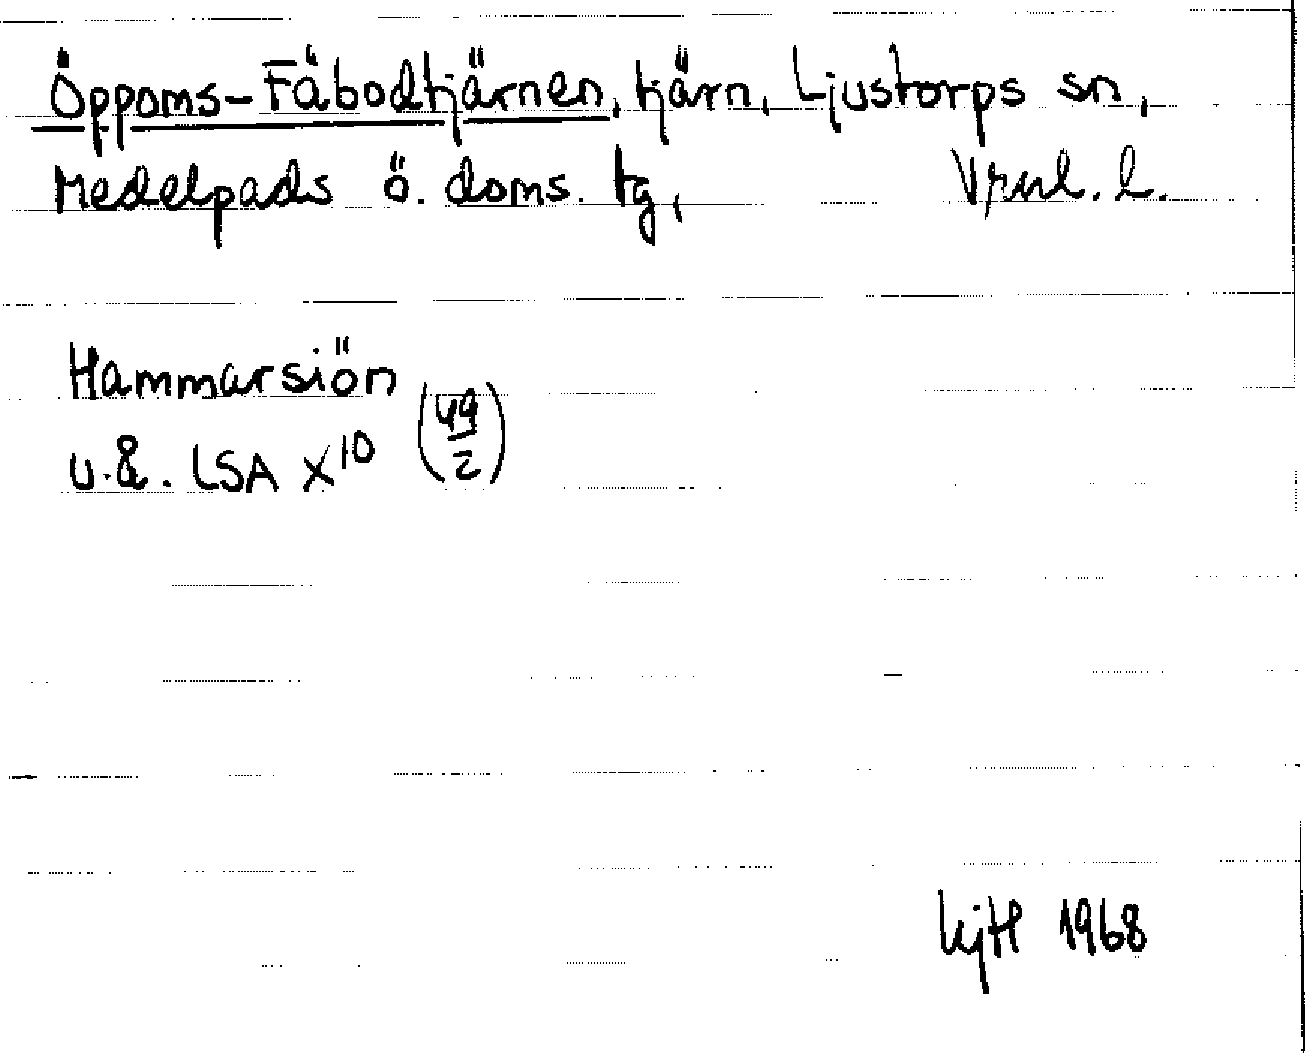 Öppoms-Fäbodtjärnen, tjärn, Ljustorps sn,
Medelpads ö. doms. tg, Vrnl. l.
Hammarsiön
u.å. LSA X10 (49/2)
1968